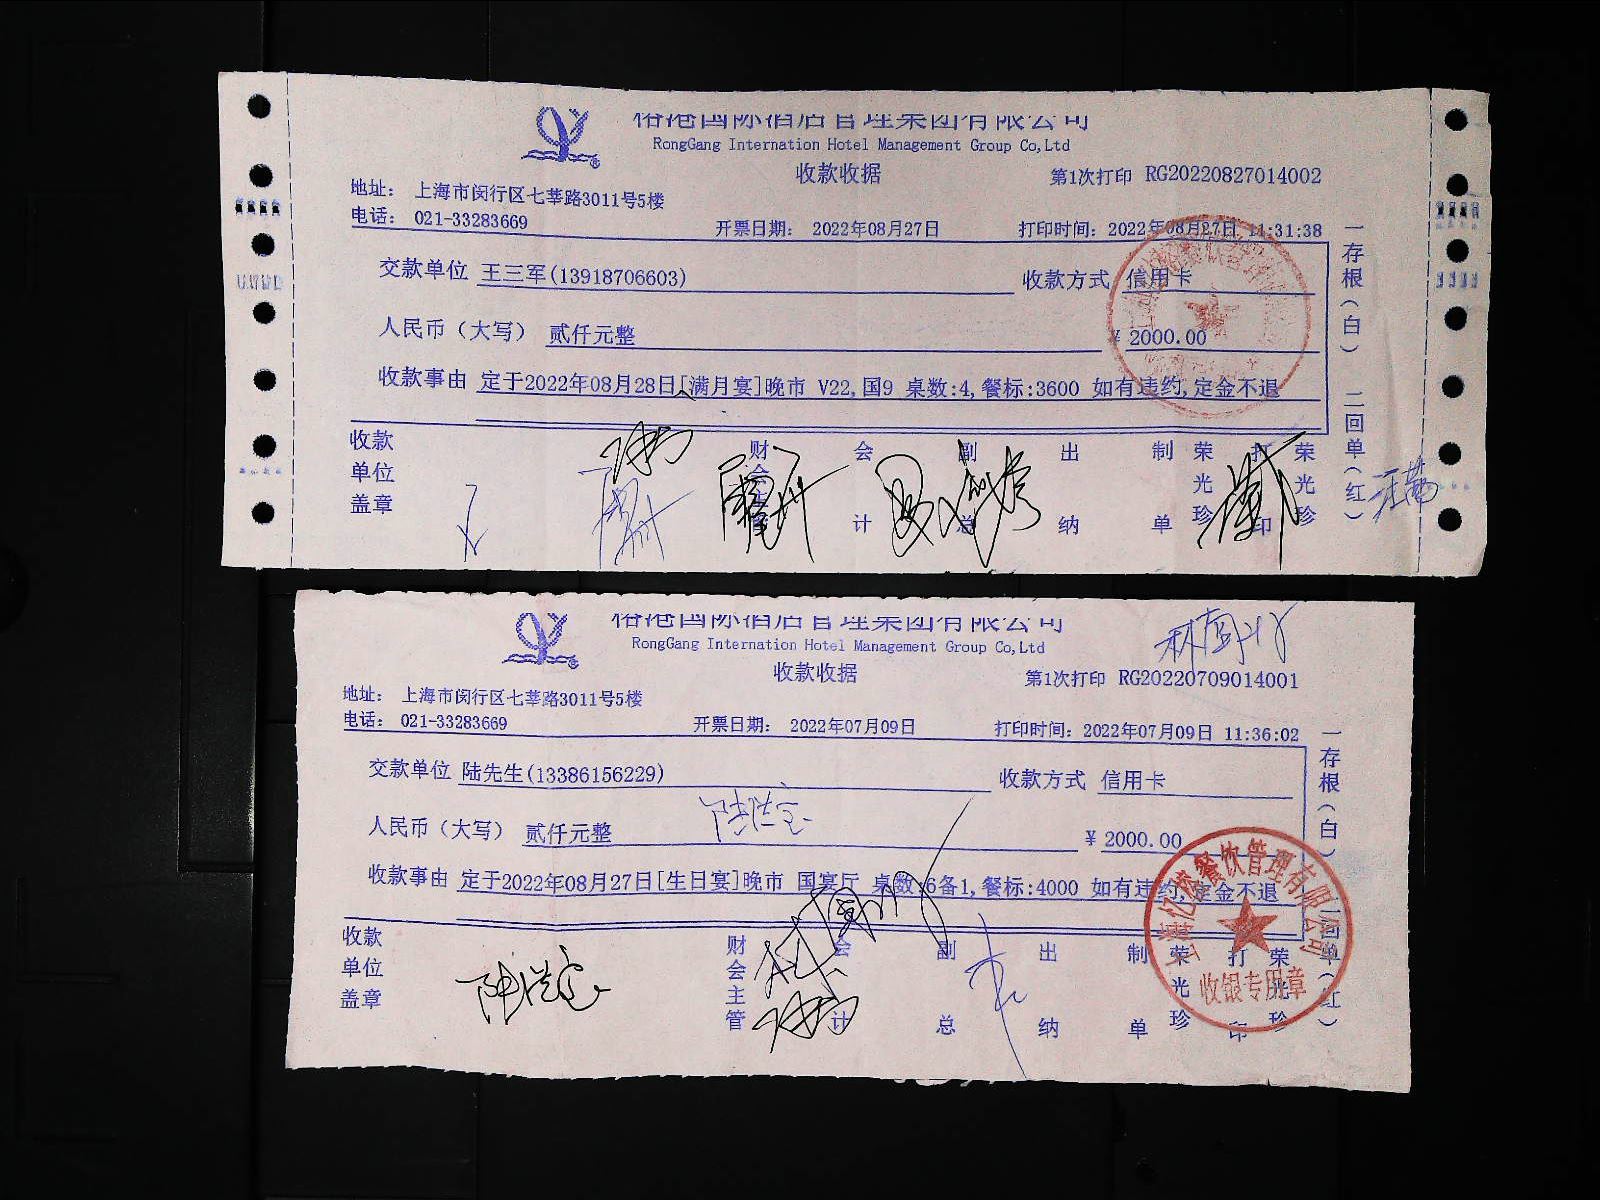 榕港国际酒店管理集团有限公司
RongGang Internation Hotel Management Group Co,Ltd
收款收据
第1次打印 RG20220827014002
地址： 上海市闵行区七莘路3011号5楼
电话： 021-33283669
开票日期： 2022年08月27日
打印时间：2022年08月27日 11:31:38
交款单位 王三军(13918706603)
收款方式 信用卡
人民币（大写） 贰仟元整
¥ 2000.00
收款事由 定于2022年08月28日[满月宴]晚市 V22,国9 桌数:4,餐标:3600 如有违约,定金不退
收款单位盖章
财会主管
会计
副总
出纳
制单
荣光珍
打印
荣光珍
一存根(白) 二回单(红)
榕港国际酒店管理集团有限公司
RongGang Internation Hotel Management Group Co,Ltd
收款收据
第1次打印 RG20220709014001
地址： 上海市闵行区七莘路3011号5楼
电话： 021-33283669
开票日期： 2022年07月09日
打印时间：2022年07月09日 11:36:02
交款单位 陆先生(13386156229)
收款方式 信用卡
人民币（大写） 贰仟元整
¥ 2000.00
收款事由 定于2022年08月27日[生日宴]晚市 国宴厅 桌数:6备1,餐标:4000 如有违约,定金不退
收款单位盖章
财会主管
会计
副总
出纳
制单
荣光珍
打印
荣光珍
一存根(白) 二回单(红)
餐饮管理有限公司
收银专用章